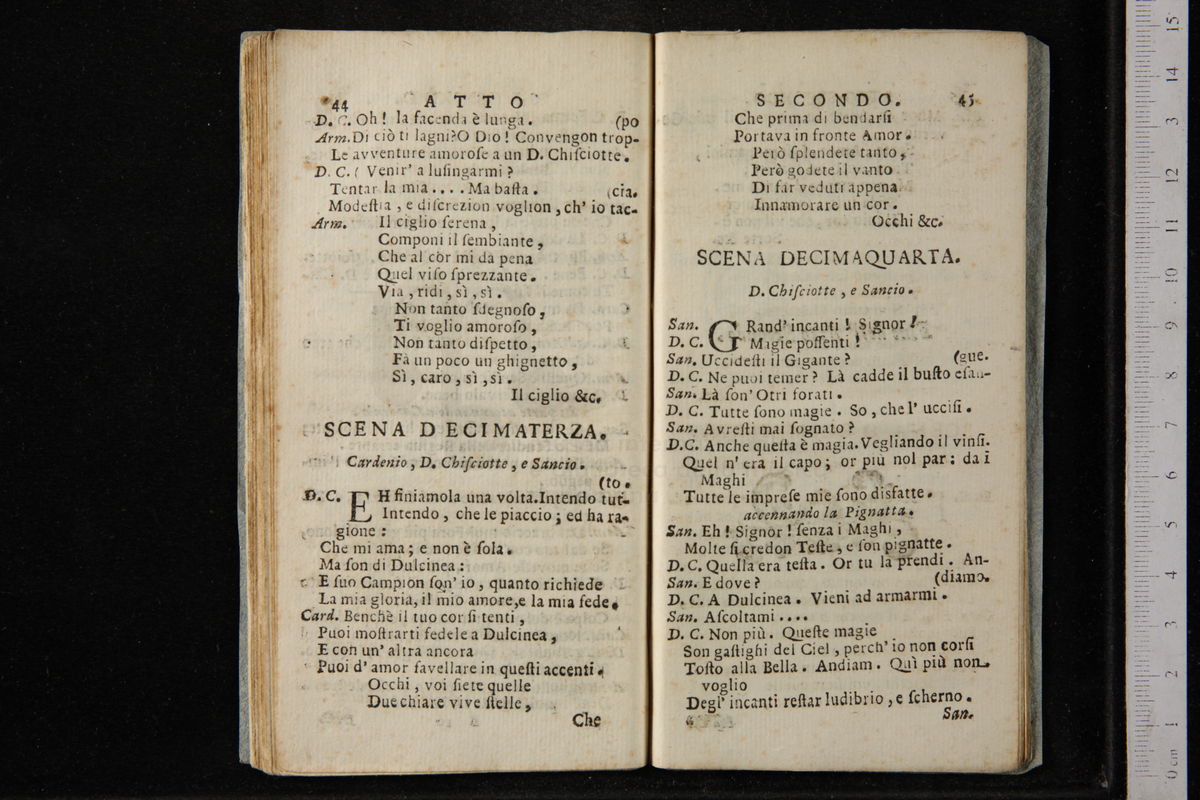 44 ATTO
D. C. Oh! la facenda è lunga. (po
Arm. Di ciò ti lagni? O Dio! Convengon trop-
Le avventure amoroſe a un D. Chiſciotte.
D. C. ( Venir' a luſingarmi?
Tentar la mia .... Ma baſta. (cia.
Modeſtia, e diſcrezion voglion, ch' io tac-
Arm. Il ciglio ſerena,
Componi il ſembiante,
Che al còr mi da pena
Quel viſo ſprezzante.
Via, ridi, sì, sì.
Non tanto ſdegnoſo,
Ti voglio amoroſo,
Non tanto diſpetto,
Fà un poco un ghignetto,
Sì, caro, sì, sì.
Il ciglio &c.
SCENA DECIMATERZA.
Cardenio, D. Chiſciotte, e Sancio.
(to.
D. C. EH finiamola una volta. Intendo tut-
Intendo, che le piaccio; ed ha ra-
gione:
Che mi ama; e non è ſola.
Ma ſon di Dulcinea:
E ſuo Campion ſon' io, quanto richiede
La mia gloria, il mio amore, e la mia fede.
Card. Benchè il tuo cor ſi tenti,
Puoi moſtrarti fedele a Dulcinea,
E con un' altra ancora
Puoi d' amor favellare in queſti accenti.
Occhi, voi ſiete quelle
Due chiare vive ſtelle,
Che
SECONDO. 45
Che prima di bendarſi
Portava in fronte Amor.
Però ſplendete tanto,
Però godete il vanto
Di far veduti appena
Innamorare un cor.
Occhi &c.
SCENA DECIMAQUARTA.
D. Chiſciotte, e Sancio.
San. GRand' incanti! Signor!
D. C. Magie poſſenti!
San. Uccideſti il Gigante? (gue.
D. C. Ne puoi temer? Là cadde il buſto eſan-
San. Là ſon' Otri forati.
D. C. Tutte ſono magie. So, che l' ucciſi.
San. Avreſti mai ſognato?
D.C. Anche queſta è magia. Vegliando il vinſi.
Quel n' era il capo; or più nol par: da i
Maghi
Tutte le impreſe mie ſono disfatte.
accennando la Pignatta.
San. Eh! Signor! ſenza i Maghi,
Molte ſi credon Teſte, e ſon pignatte.
D. C. Quella era teſta. Or tu la prendi. An-
San. E dove? (diamo.
D. C. A Dulcinea. Vieni ad armarmi.
San. Aſcoltami ....
D. C. Non più. Queſte magie
Son gaſtighi del Ciel, perch' io non corſi
Toſto alla Bella. Andiam. Quì più non
voglio
Degl' incanti reſtar ludibrio, e ſcherno.
San.
0 cm 1 2 3 4 5 6 7 8 9 10 11 12 13 14 15